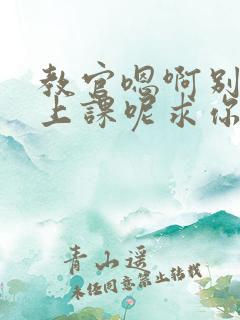 教官嗯啊别
上課呢求你
青山遥
未经同意禁止转载